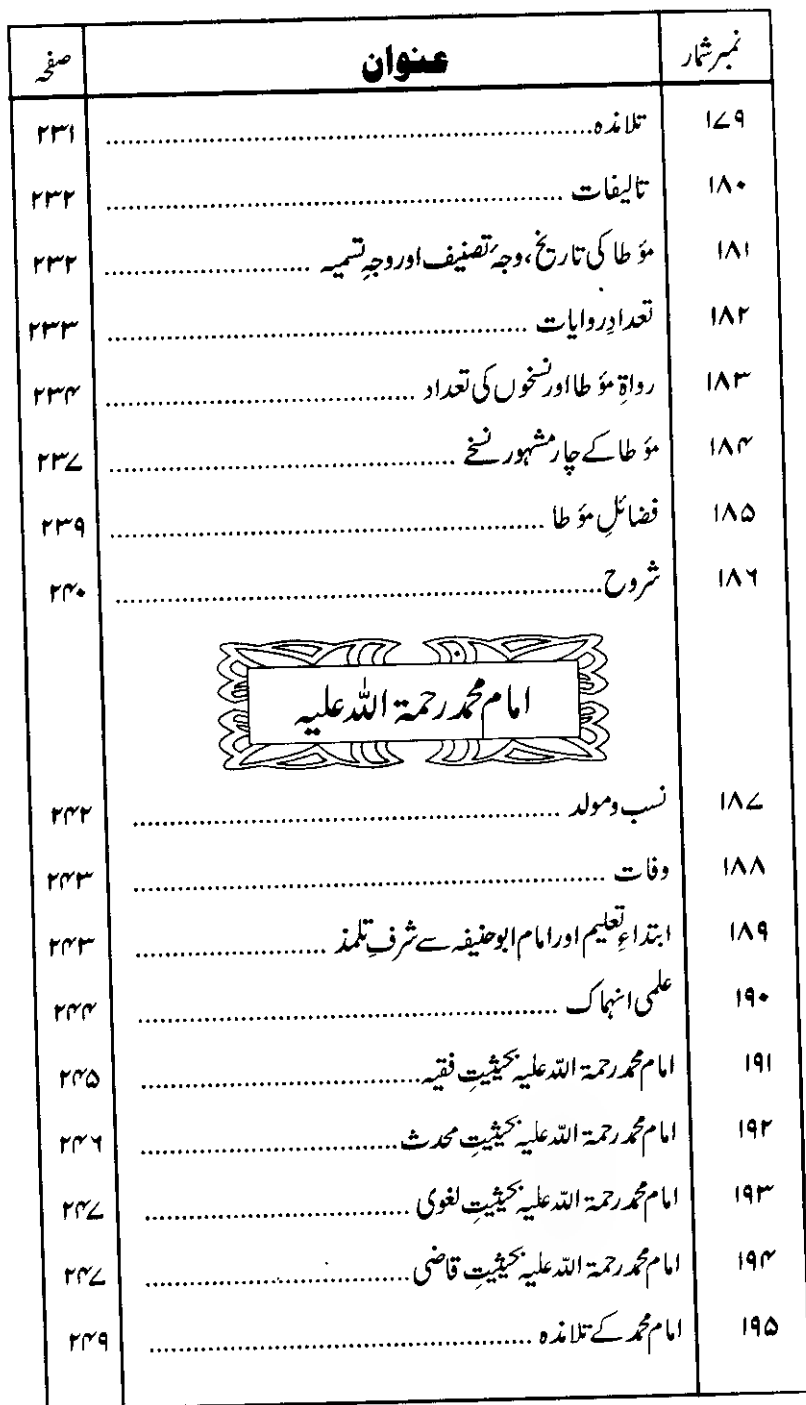 نمبرشمار عنوان صفحہ
۱۷۹ تلامذہ ................ ۲۳۱
۱۸۰ تالیفات ................ ۲۳۲
۱۸۱ مؤطا کی تاریخ، وجۂ تصنیف اور وجہِ تسمیہ ................ ۲۳۲
۱۸۲ تعدادِ روایات ................ ۲۳۳
۱۸۳ رواۃِ مؤطا اور نسخوں کی تعداد ................ ۲۳۴
۱۸۴ مؤطا کے چار مشہور نسخے ................ ۲۳۷
۱۸۵ فضائلِ مؤطا ................ ۲۳۹
۱۸۶ شروح ................ ۲۴۰
امام محمد رحمۃ اللہ علیہ
۱۸۷ نسب ومولد ................ ۲۴۲
۱۸۸ وفات ................ ۲۴۳
۱۸۹ ابتداءِ تعلیم اور امام ابوحنیفہ سے شرفِ تلمذ ................ ۲۴۳
۱۹۰ علمی انہماک ................ ۲۴۴
۱۹۱ امام محمد رحمۃ اللہ علیہ بحیثیتِ فقیہ ................ ۲۴۵
۱۹۲ امام محمد رحمۃ اللہ علیہ بحیثیتِ محدث ................ ۲۴۶
۱۹۳ امام محمد رحمۃ اللہ علیہ بحیثیتِ لغوی ................ ۲۴۷
۱۹۴ امام محمد رحمۃ اللہ علیہ بحیثیتِ قاضی ................ ۲۴۷
۱۹۵ امام محمد کے تلامذہ ................ ۲۴۹